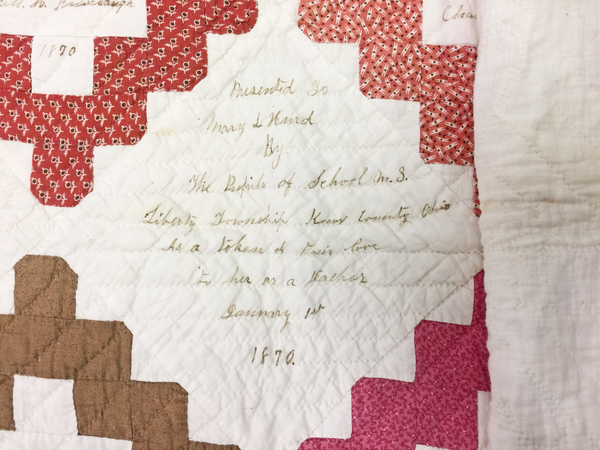 1870
Presented To
Mary L Hurd
By
The Pupils of School No. 8.
Liberty Township Knox County Ohio
As a token of their love
to her as a Teacher
January 1st
1870.